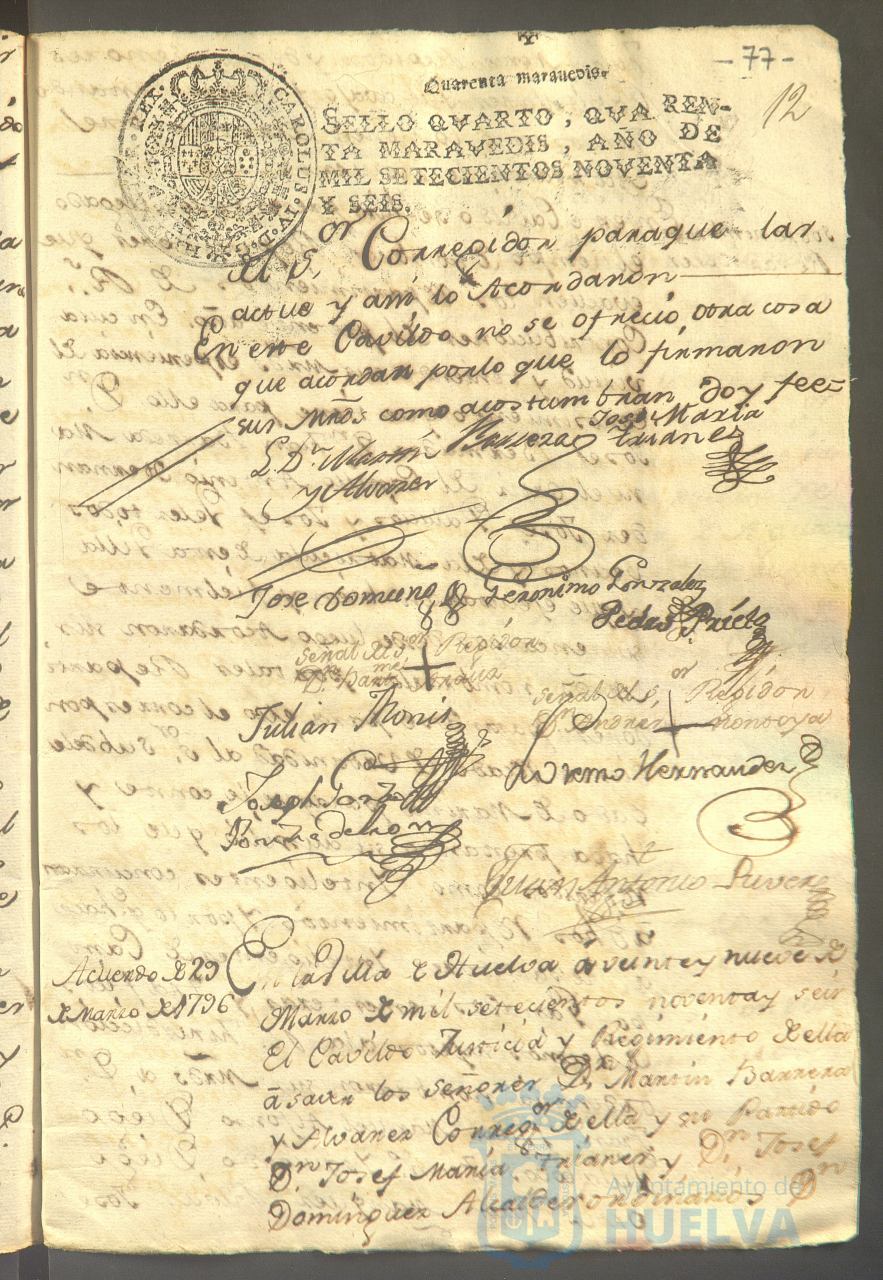 -77-
12
Quarenta maravedis.
SELLO QVARTO, QVAREN-
TA MARAVEDIS, AÑO DE
MIL SETECIENTOS NOVENTA
Y SEIS.
CAROLUS IV D. G. HISPANIAR. REX.
el S.or Corregidor para que las
actue y asi lo Acordaron
En este Cavildo no se ofreció otra cosa
que acordar por lo que lo firmaron
sus Mrds como acostumbran doy fee=
L. Dn Martin Barrera
y Alvarez
Jose Maria
trianes
Jose Domingz
Geronimo Gonzalez
Pedro Prieto
señal del S.or Regidor
Dn Bartme
señal del S.or Regidor
Dn Andres Montoya
Julian Monis
Joseph Garzia
Hernandez
Thomas de
Juan Antonio
Acuerdo de 29
de Marzo de 1796
En la Villa de Huelva a veinte y nueve de
Marzo de mil setecientos noventa y seis
El Cavildo Justicia y Regimiento de ella
a saver los señores Dn Martin Barrera
y Alvarez Correg.or de ella y su Partido
Dn Josef Maria trianes y Dn Josef
Dominguez Alcaldes ordinarios Dn
Ayuntamiento de
HUELVA